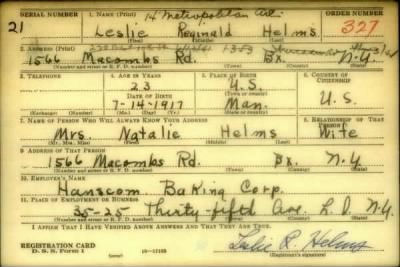 SERIAL NUMBER 1. NAME (Print) 14 Metropolitan ORDER NUMBER
21 Leslie Reginald Helms 327
(First) (Middle) (Last)
2. ADDRESS (Print)
1566 Macombs Rd. Bx. N.Y.
(Number and street or R. F. D. number) (Town) (County) (State)
3. TELEPHONE 4. AGE IN YEARS 5. PLACE OF BIRTH 6. COUNTRY OF CITIZENSHIP
23 U.S.
DATE OF BIRTH (Town or county)
7-14-1917 Man. U.S.
(Exchange) (Number) (Mo.) (Day) (Yr.) (State or country)
7. NAME OF PERSON WHO WILL ALWAYS KNOW YOUR ADDRESS 8. RELATIONSHIP OF THAT PERSON
Mrs. Natalie Helms Wife
(Mr., Mrs., Miss) (First) (Middle) (Last)
9. ADDRESS OF THAT PERSON
1566 Macombs Rd. Bx. N.Y
(Number and street or R. F. D. number) (Town) (County) (State)
10. EMPLOYER'S NAME
Hanscom Baking Corp.
11. PLACE OF EMPLOYMENT OR BUSINESS
35-25 Thirty-fifth Ave. L.I. N.Y.
(Number and street or R. F. D. number) (Town) (County) (State)
I AFFIRM THAT I HAVE VERIFIED ABOVE ANSWERS AND THAT THEY ARE TRUE.
REGISTRATION CARD
D. S. S. Form 1 16-17105 Leslie R. Helms
(Registrant's signature)